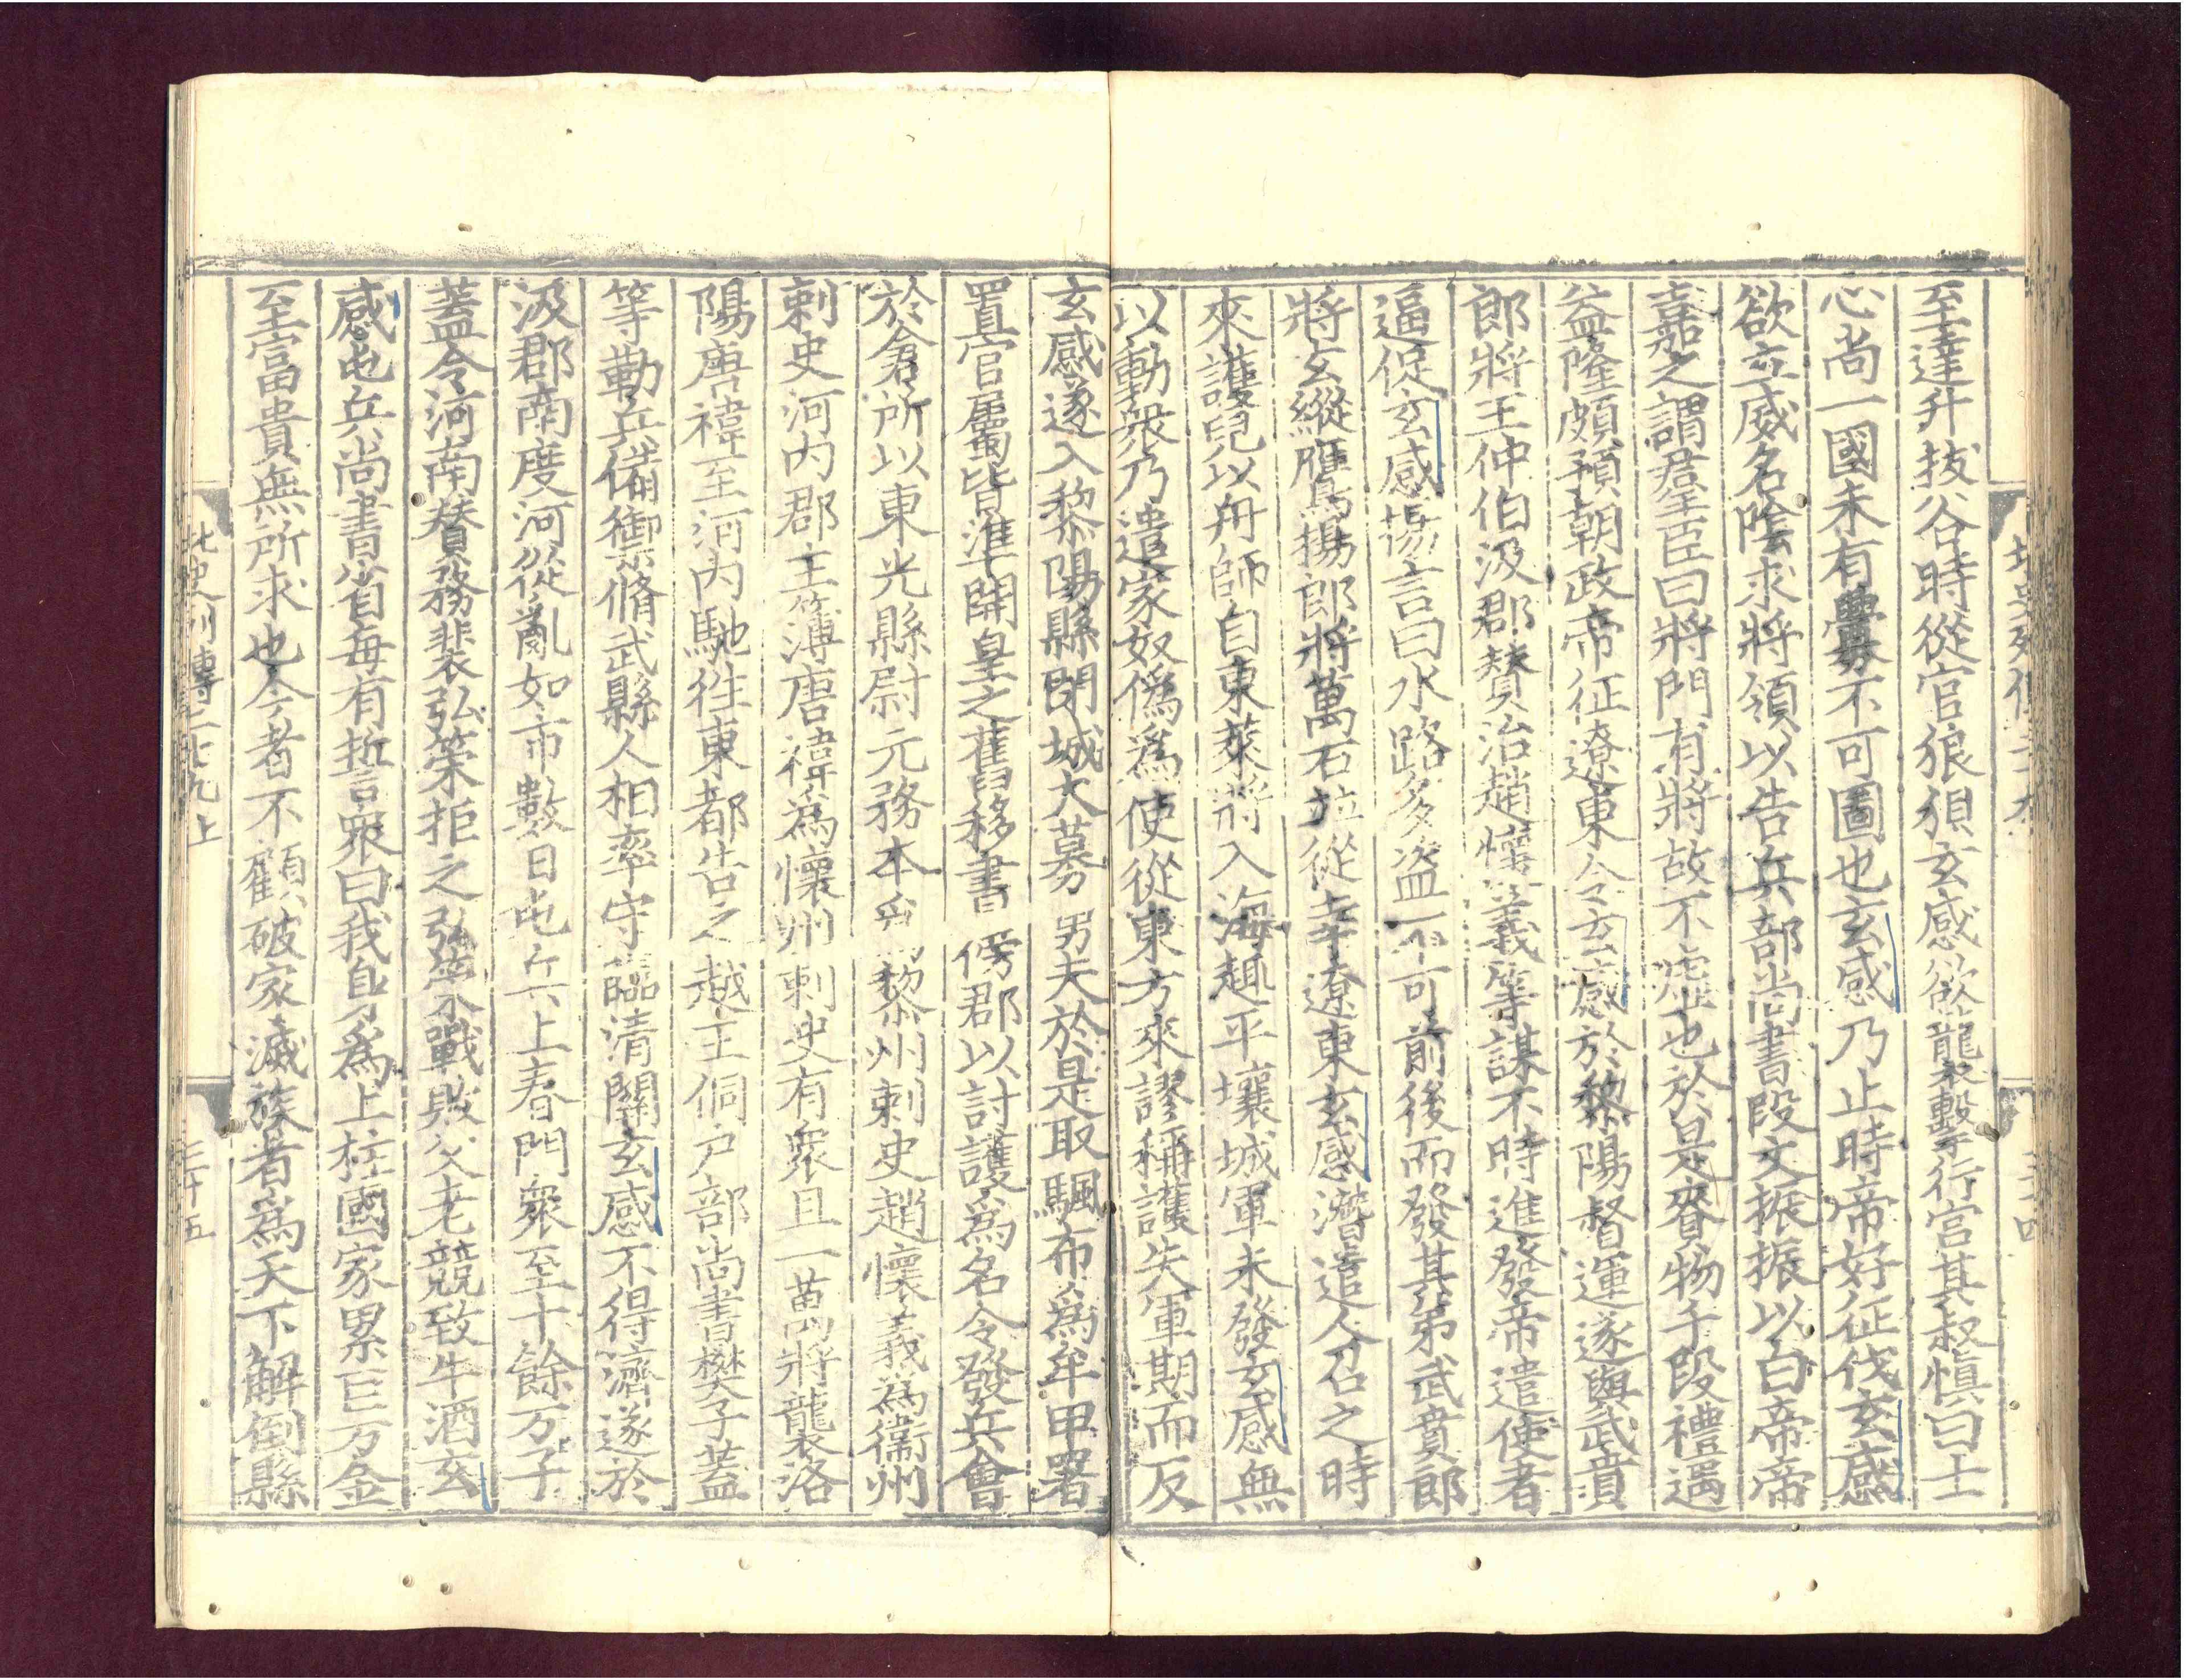 至達升拔谷時從官狼狽玄感欲襲擊行宮其叔愼曰士
心尚一國未有釁不可圖也玄感乃止時帝好征伐玄感
欲立威名陰求將領以告兵部尚書段文振振以白帝帝
嘉之謂羣臣曰將門有將故不虛也於是賚物千段禮遇
益隆頗預朝政帝征遼東令玄感於黎陽督運遂與武賁
郎將王仲伯汲郡賛治趙懷義等謀不時進發帝遣使者
逼促玄感揚言曰水路多盗不可前後而發其弟武賁郎
將玄縱鷹揚郎將萬石並從幸遼東玄感潛遣人召之時
來護兒以舟師自東萊將入海趣平壤城軍未發玄感無
以動衆乃遣家奴僞爲使從東方來謬稱護失軍期而反
玄感遂入黎陽縣閉城大募男夫於是取颿布爲牟甲署
置官屬皆準開皇之舊移書傍郡以討護爲名令發兵會
於倉所以東光縣尉元務本爲黎州刺史趙懷義爲衞州
刺史河内郡主簿唐禕爲懷州刺史有衆且一萬將襲洛
陽唐禕至河内馳往東都告之越王侗户部尚書樊子蓋
等勒兵備禦脩武縣人相率守臨清關玄感不得濟遂於
汲郡南度河從亂如市數日屯兵上春門衆至十餘万子
蓋令河南賛務裴弘策拒之弘策戰敗父老競致牛酒玄
感屯兵尚書省每有誓衆曰我身爲上柱國家累巨万金
至富貴無所求也今者不顧破家滅族者爲天下解倒縣
北史列傳二十九上
三十五
三十四